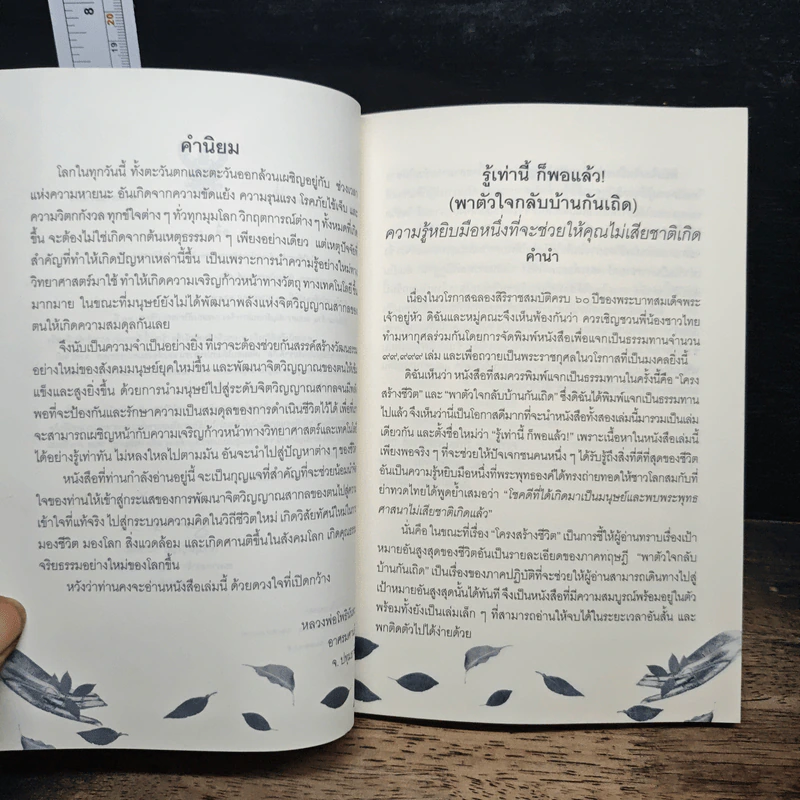 8
20
19
คำนิยม
โลกในทุกวันนี้ ทั้งตะวันตกและตะวันออกล้วนเผชิญอยู่กับ ช่วงเวลา
แห่งความหายนะ อันเกิดจากความขัดแย้ง ความรุนแรง โรคภัยไข้เจ็บ และ
ความวิตกกังวล ทุกข์ใจต่าง ๆ ทั่วทุกมุมโลก วิกฤตการณ์ต่าง ๆ ทั้งหมดที่เกิด
ขึ้น จะต้องไม่ใช่เกิดจากต้นเหตุธรรมดา ๆ เพียงอย่างเดียว แต่เหตุปัจจัยที่
สำคัญที่ทำให้เกิดปัญหาเหล่านี้ขึ้น เป็นเพราะการนำความรู้อย่างใหม่ทาง
วิทยาศาสตร์มาใช้ ทำให้เกิดความเจริญก้าวหน้าทางวัตถุ ทางเทคโนโลยี ขึ้น
มากมาย ในขณะที่มนุษย์ยังไม่ได้พัฒนาพลังแห่งจิตวิญญาณสากลของ
ตนให้เกิดความสมดุลกันเลย
จึงนับเป็นความจำเป็นอย่างยิ่ง ที่เราจะต้องช่วยกันสรรค์สร้างวัฒนธรรม
อย่างใหม่ของสังคมมนุษย์ยุคใหม่ขึ้น และพัฒนาจิตวิญญาณของตนให้เข้ม
แข็งและสูงยิ่งขึ้น ด้วยการนำมนุษย์ไปสู่ระดับจิตวิญญาณสากลจนมีพลัง
พอที่จะป้องกันและรักษาความเป็นสมดุลของการดำเนินชีวิตไว้ได้ เพื่อที่
จะสามารถเผชิญหน้ากับความเจริญก้าวหน้าทางวิทยาศาสตร์และเทคโนโลยี
ได้อย่างรู้เท่าทัน ไม่หลงใหลไปตามมัน อันจะนำไปสู่ปัญหาต่าง ๆ ของชีวิต
หนังสือที่ท่านกำลังอ่านอยู่นี้ จะเป็นกุญแจที่สำคัญที่จะช่วยน้อมนำจิต
ใจของท่านให้เข้าสู่กระแสของการพัฒนาจิตวิญญาณสากลของตนไปสู่ความ
เข้าใจที่แท้จริง ไปสู่กระบวนความคิดในวิถีชีวิตใหม่ เกิดวิสัยทัศน์ใหม่ในการ
มองชีวิต มองโลก สิ่งแวดล้อม และเกิดศานติขึ้นในสังคมโลก เกิดคุณธรรม
จริยธรรมอย่างใหม่ของโลกขึ้น
หวังว่าท่านคงจะอ่านหนังสือเล่มนี้ ด้วยดวงใจที่เปิดกว้าง
หลวงพ่อโพธินันทะ
อาศรม
จ.
รู้เท่านี้ ก็พอแล้ว!
(พาตัวใจกลับบ้านกันเถิด)
ความรู้หยิบมือหนึ่งที่จะช่วยให้คุณไม่เสียชาติเกิด
คำนำ
เนื่องในวโรกาสฉลองสิริราชสมบัติครบ ๖๐ ปีของพระบาทสมเด็จพระ
เจ้าอยู่หัว ดิฉันและหมู่คณะจึงเห็นพ้องกันว่า ควรเชิญชวนพี่น้องชาวไทย
ทำมหากุศลร่วมกันโดยการจัดพิมพ์หนังสือเพื่อแจกเป็นธรรมทานจำนวน
๙๙,๙๙๙ เล่ม และเพื่อถวายเป็นพระราชกุศลในวโรกาสที่เป็นมงคลยิ่งนี้
ดิฉันเห็นว่า หนังสือที่สมควรพิมพ์แจกเป็นธรรมทานในครั้งนี้คือ “โครง
สร้างชีวิต” และ “พาตัวใจกลับบ้านกันเถิด” ซึ่งดิฉันได้พิมพ์แจกเป็นธรรมทาน
ไปแล้ว จึงเห็นว่านี่เป็นโอกาสดีมากที่จะนำหนังสือทั้งสองเล่มนี้มารวมเป็นเล่ม
เดียวกัน และตั้งชื่อใหม่ว่า “รู้เท่านี้ ก็พอแล้ว!” เพราะเนื้อหาในหนังสือเล่มนี้
เพียงพอจริง ๆ ที่จะช่วยให้ปัจเจกชนคนหนึ่ง ๆ ได้รับรู้ถึงสิ่งที่ดีที่สุดของชีวิต
อันเป็นความรู้หยิบมือหนึ่งที่พระพุทธองค์ได้ทรงถ่ายทอดให้ชาวโลกสมกับที่
ย่าทวดไทยได้พูดย้ำเสมอว่า “โชคดีที่ได้เกิดมาเป็นมนุษย์และพบพระพุทธ
ศาสนาไม่เสียชาติเกิดแล้ว”
นั่นคือ ในขณะที่เรื่อง “โครงสร้างชีวิต” เป็นการชี้ให้ผู้อ่านทราบเรื่องเป้า
หมายอันสูงสุดของชีวิตอันเป็นรายละเอียดของภาคทฤษฎี “พาตัวใจกลับ
บ้านกันเถิด” เป็นเรื่องของภาคปฏิบัติที่จะช่วยให้ผู้อ่านสามารถเดินทางไปสู่
เป้าหมายอันสูงสุดนั้นได้ทันที จึงเป็นหนังสือที่มีความสมบูรณ์พร้อมอยู่ในตัว
พร้อมทั้งยังเป็นเล่มเล็ก ๆ ที่สามารถอ่านให้จบได้ในระยะเวลาอันสั้น และ
พกติดตัวไปได้ง่ายด้วย